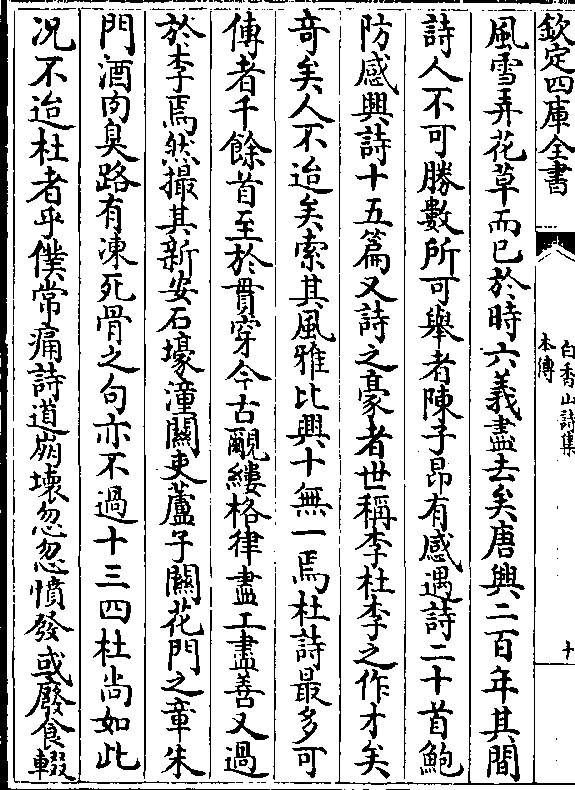 欽定四庫全書
白香山詩集
本傳
十
風雪弄花草而已於時六義盡去矣唐興二百年其間
詩人不可勝數所可舉者陳子昂有感遇詩二十首鮑
防感興詩十五篇又詩之豪者世稱李杜李之作才矣
奇矣人不迨矣索其風雅比興十無一焉杜詩最多可
傳者千餘首至於貫穿今古覼縷格律盡工盡善又過
於李焉然撮其新安石壕潼關吏蘆子關花門之章朱
門酒肉臭路有凍死骨之句亦不過十三四杜尚如此
况不迨杜者乎僕常痛詩道崩壞忽忽憤發或廢食輟